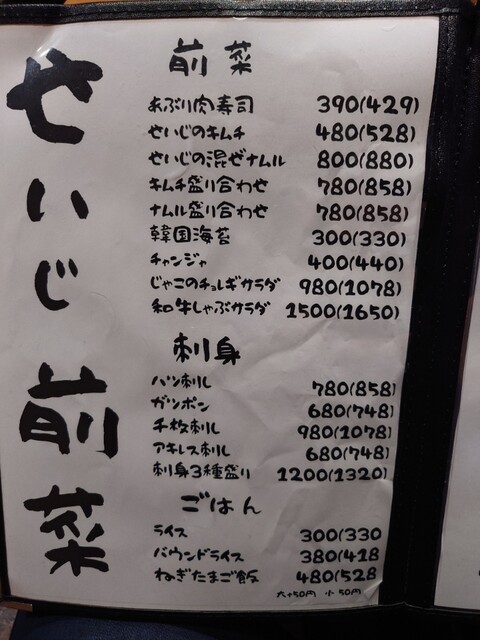 せいじ前菜
前菜
あぶり肉寿司 390(429)
せいじのキムチ 480(528)
せいじの混ぜナムル 800(880)
キムチ盛り合わせ 780(858)
ナムル盛り合わせ 780(858)
韓国海苔 300(330)
チャンジャ 400(440)
じゃこのチョレギサラダ 980(1078)
和牛しゃぶサラダ 1500(1650)
刺身
ハツ刺し 780(858)
ガツポン 680(748)
千枚刺し 980(1078)
アキレス刺し 680(748)
刺身3種盛り 1200(1320)
ごはん
ライス 300(330
バウンドライス 380(418
ねぎたまご飯 480(528
大+50円 小 50円